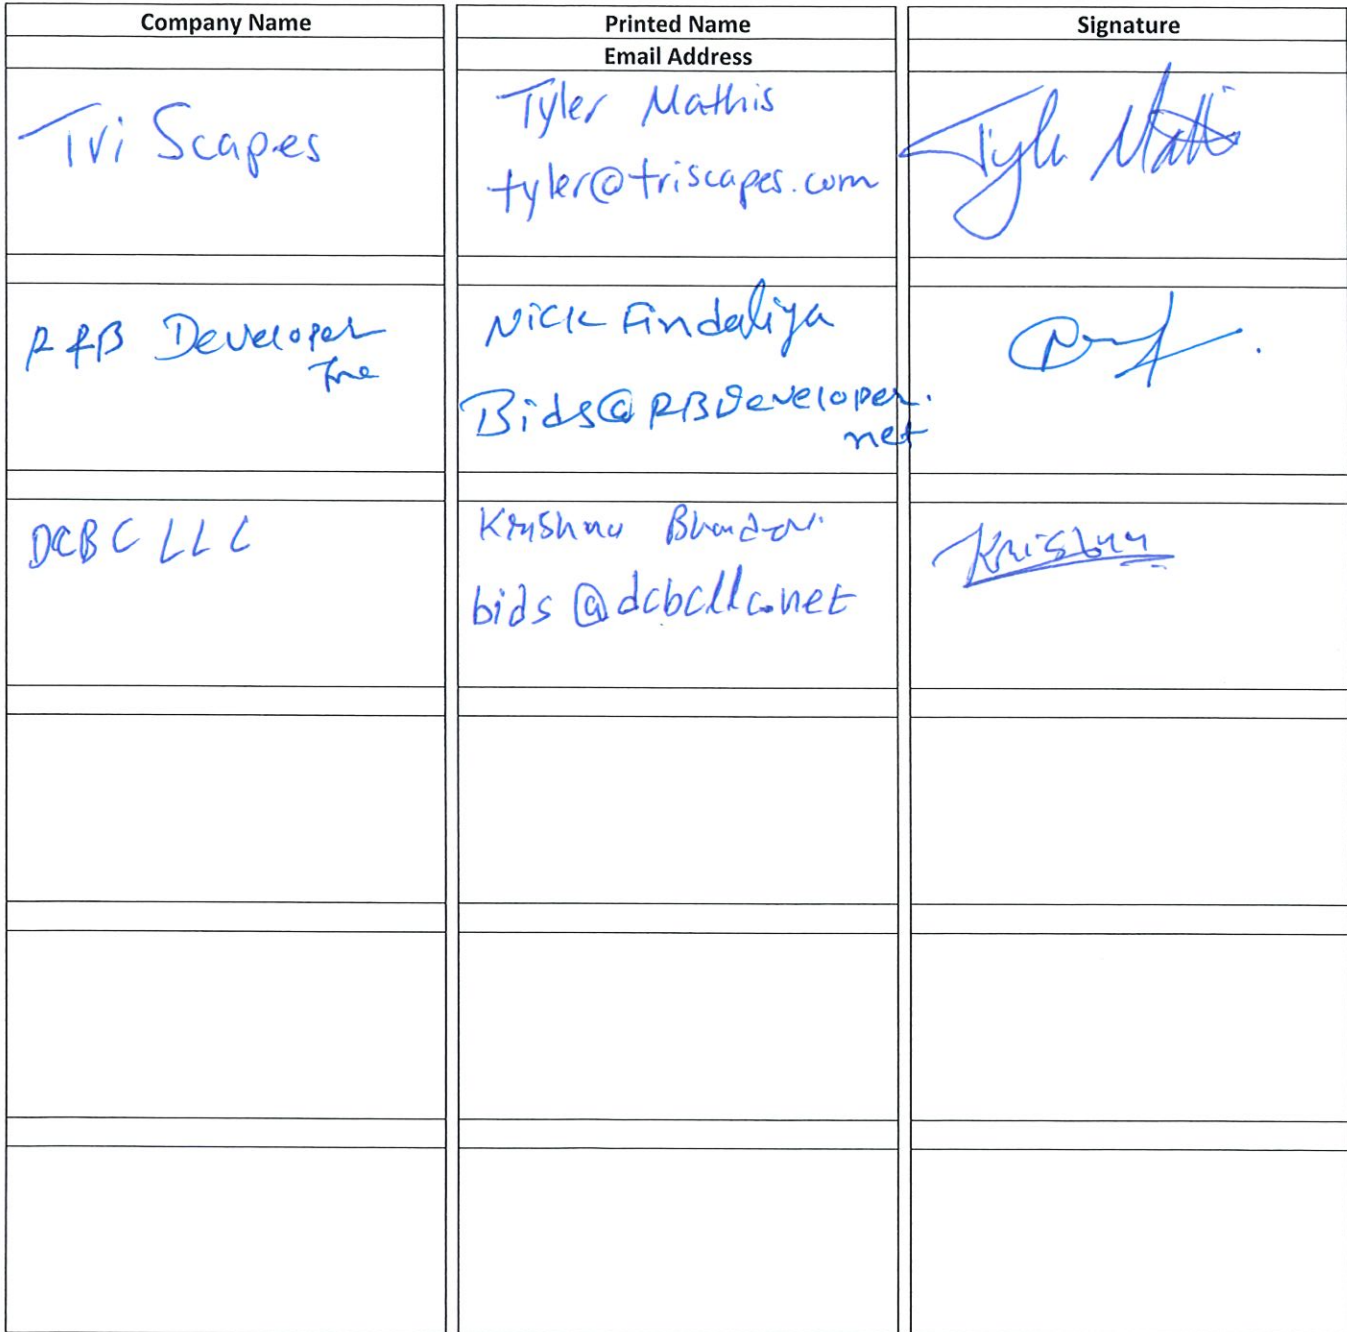 Company Name
Printed Name
Email Address
Signature
Tri Scapes
Tyler Mathis
tyler@triscapes.com
Tyler Mathis
R&B Developer
Inc
Nick Findaliya
Bids@RBDeveloper.
net
DCBC LLC
Krishna Bhandari
bids@dcbcllc.net
Krishna